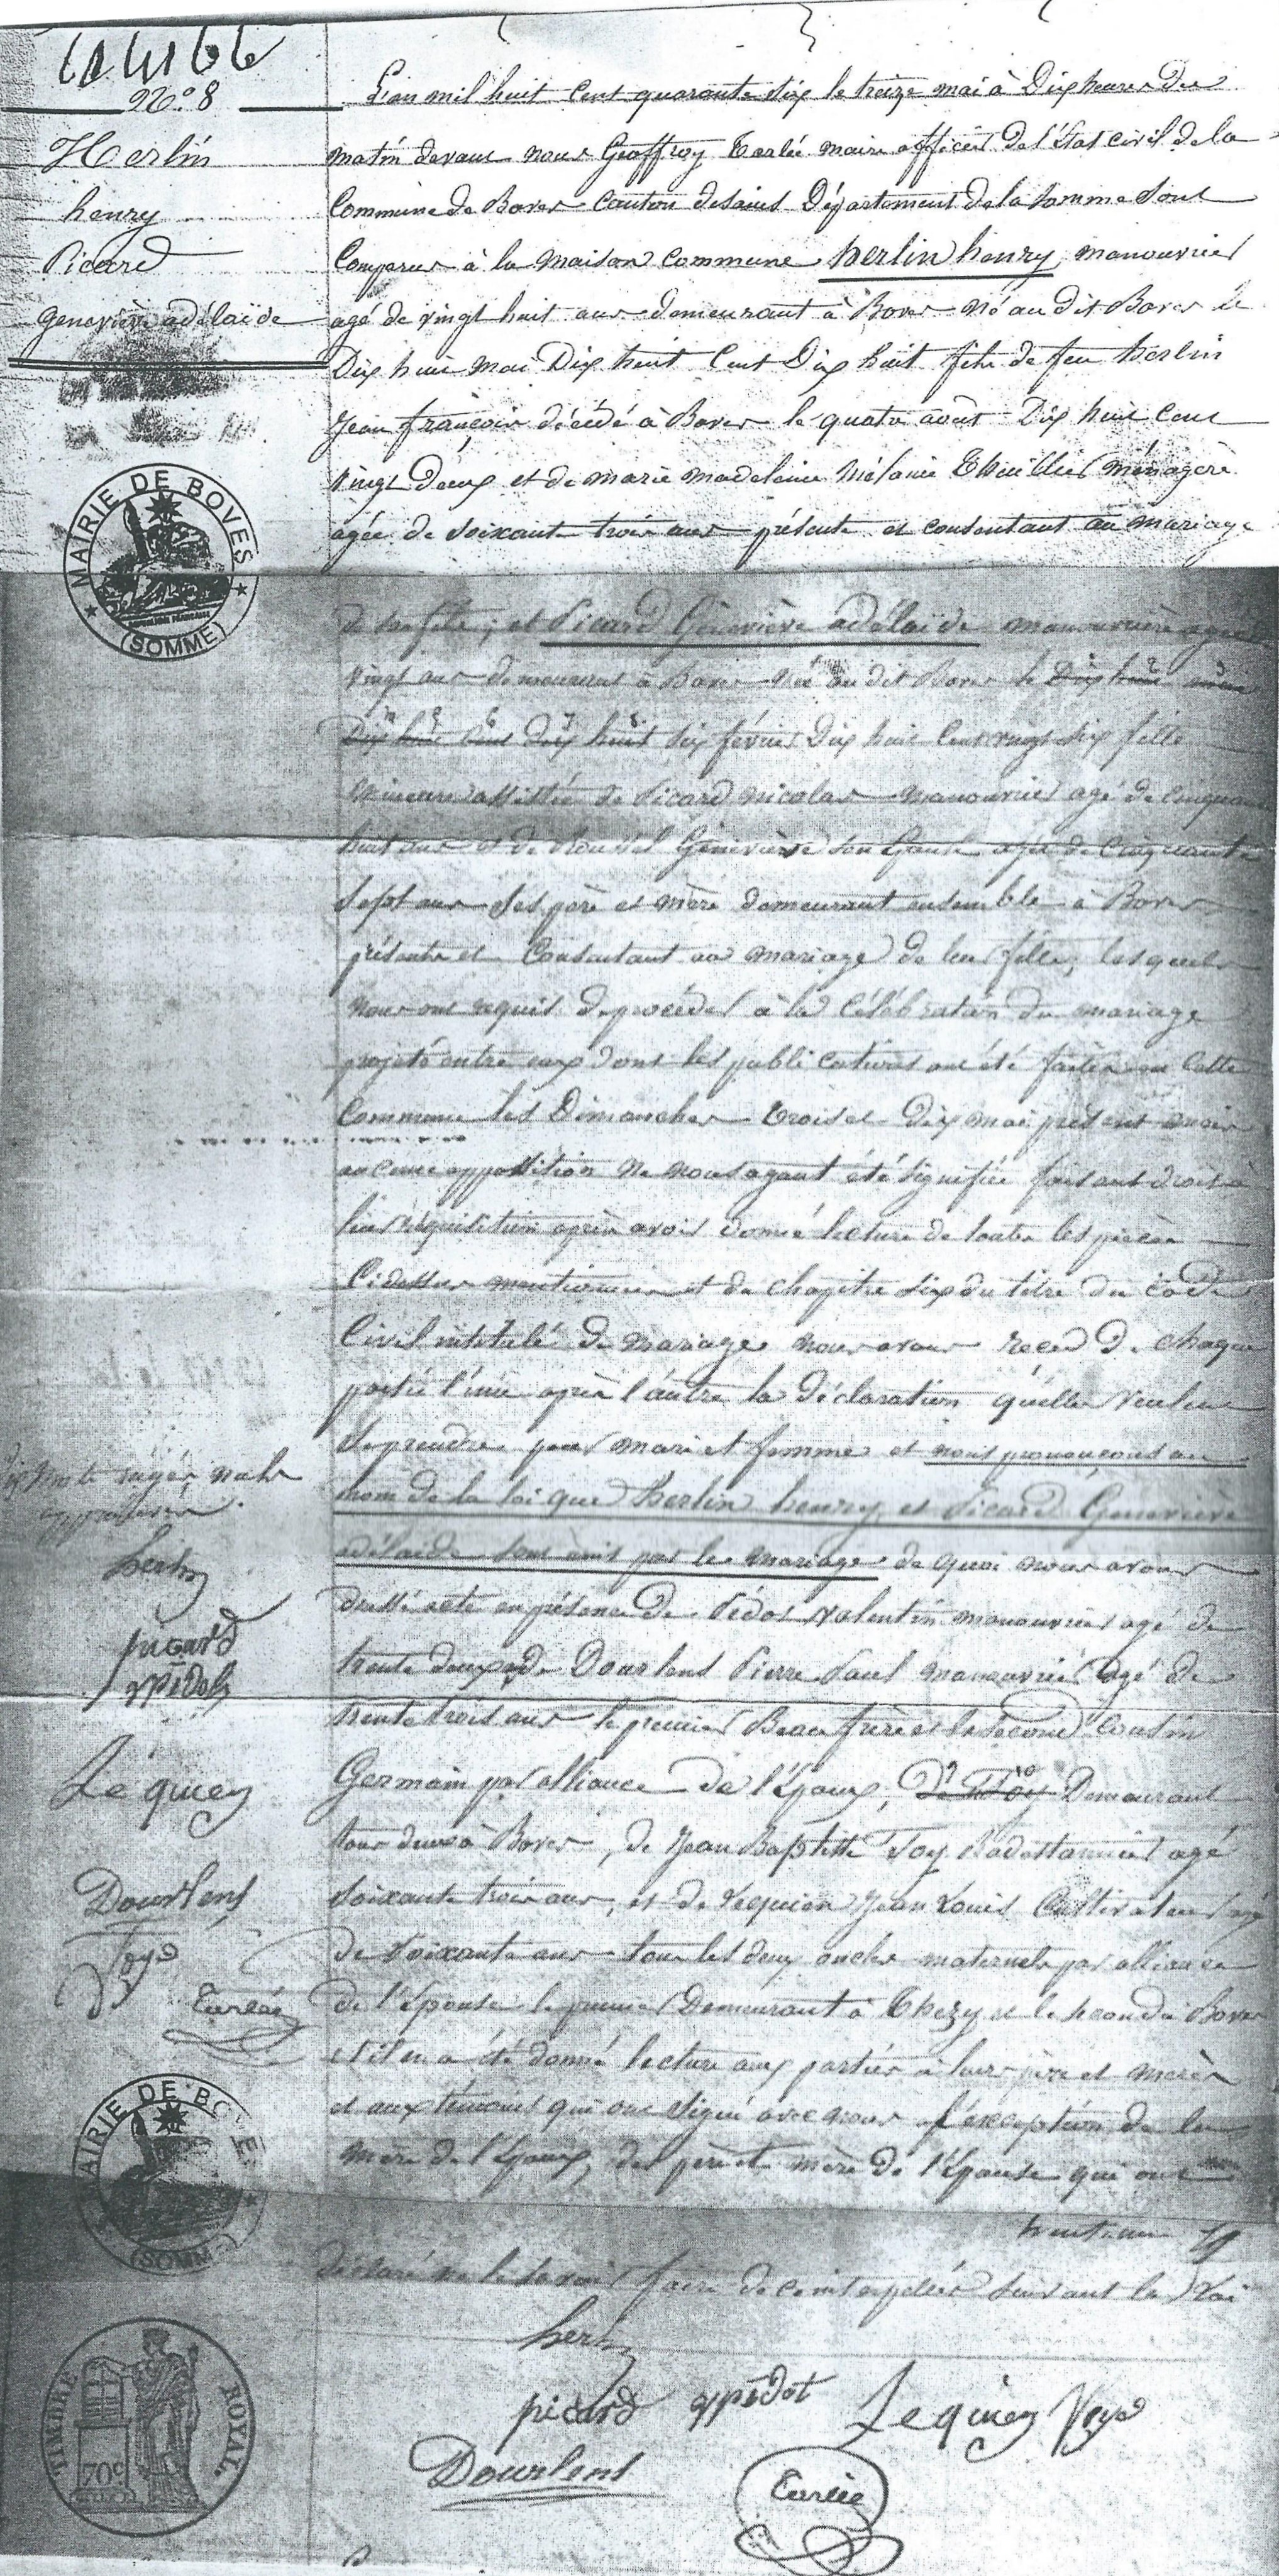 N.° 8
Herlin
henry
Picard
Geneviève adélaïde
MAIRIE DE BOVES
(SOMME)
L'an mil huit Cent quarante six le treize mai à Dix heures du
matin devant nous Geoffroy Tarlée maire officier de l'État civil de la
Commune de Boves Canton de Sains Département de la Somme Sont
Comparus à la maison Commune herlin henry manouvrier
agé de vingt huit ans demeurant à Boves né au dit Boves le
Dix huit mai Dix huit Cent Dix huit fils de feu herlin
Jean françois décédé à Boves le quatre août Dix huit Cent
vingt deux et de marie madeleine Mélanie Thuillier ménagère
agée de soixante trois ans présente et consentant au mariage
de son fils ; et Picard Geneviève adélaïde manouvrière agée
vingt ans demeurant à Boves née au dit Boves le Dix huit mai
Dix huit Cent dix huit six février Dix huit Cent vingt six fille
mineure assistée de Picard nicolas manouvrier agé de cinquante
huit ans et de Roussel Geneviève son agée de Cinquante
Sept ans Ses père et mère demeurant ensemble à Boves
présents et Consentant au mariage de leur fille, lesquels
nous ont requis de procéder à la Célébration du mariage
projeté entre eux dont les publications ont été faites en Cette
Commune les Dimanches trois et Dix mai présent mois
aucune opposition ne nous ayant été signifiée faisant droit à
leur réquisition après avoir donné lecture de toutes les pièces
Cidessus mentionnées et du chapitre Six du titre du Code
Civil intitulé du mariage nous avons reçu de chaque
partie l'une après l'autre la Déclaration qu'elles veulent
Se prendre pour mari et femme et nous prononçons au
nom de la loi que Herlin henry et Picard Geneviève
adélaïde sont unis par le mariage de quoi nous avons
dressé acte en présence de Pédot Valentin manouvrier agé de
trente deux de Dourlens Pierre Paul manouvrier agé de
trente trois ans le premier Beau frère et le second Cousin
Germain par alliance de l'Époux, Demeurant
tous deux à Boves, de Jean Baptiste Joy Badestamier agé
Soixante trois ans, et de Lequien Jean Louis Cultivateur agé
de Soixante ans tous les deux oncles maternels par alliance
de l'Épouse le premier Demeurant à Thézy et le second à Boves
et il en a été donné lecture aux parties à leurs père et mères
et aux témoins qui ont signé avec nous à l'exception de la
mère de l'Époux, des père et mère de l'Épouse qui ont
déclaré ne le savoir faire de ce interpellés suivant la Loi
mots rayés nuls
approuvés
herlin
picard
vpédot
Lequien
Dourlens
Joyo
Tarlée
MAIRIE DE BOVES
(SOMME)
TIMBRE ROYAL
70c
herlin
picard vpédot Lequien Joyo
Dourlens Tarlée